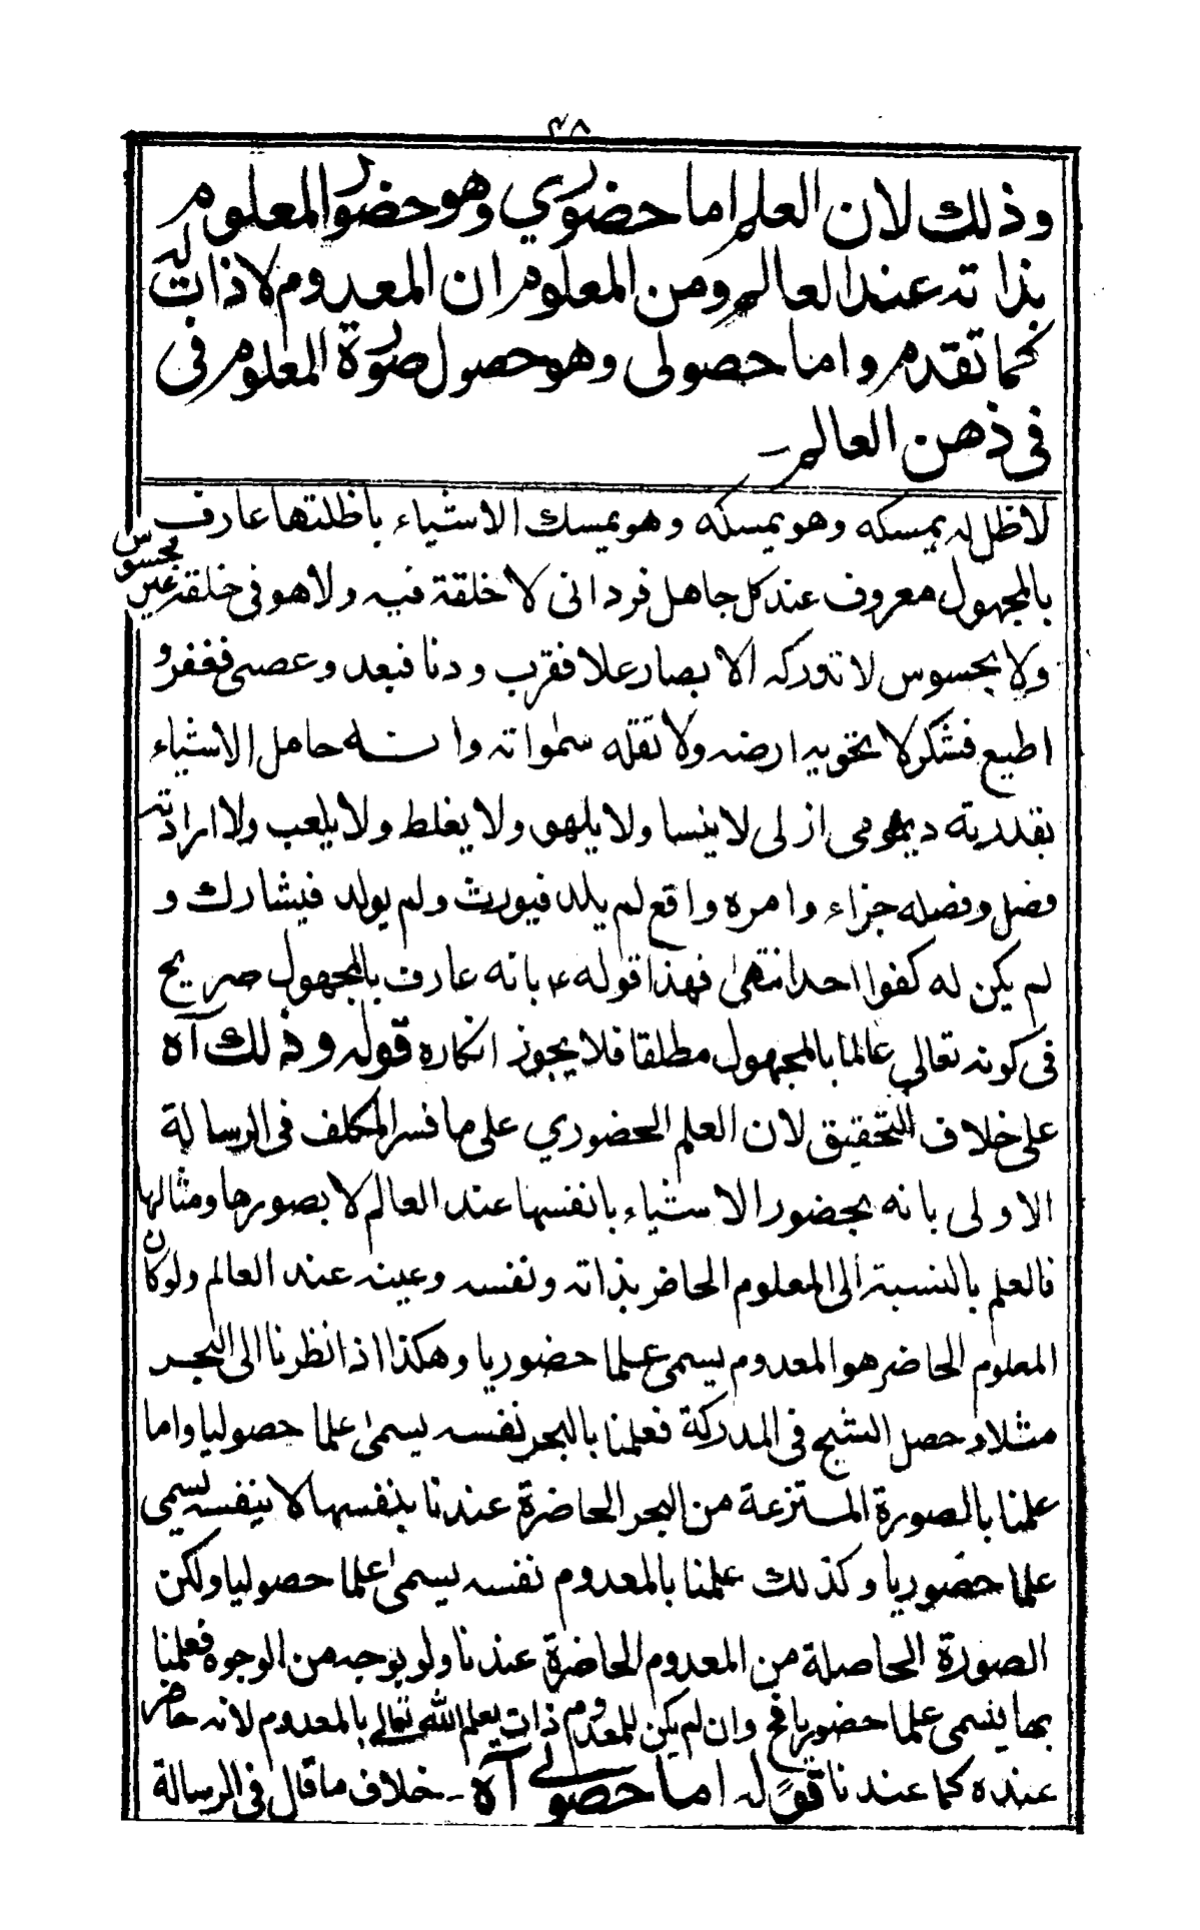 ٤٨
وذلك لان العلم اما حضوري وهو حضور المعلوم
بذاته عند العالم ومن المعلوم ان المعدوم لا ذات له
كما تقدم واما حصولى وهو حصول صورة المعلوم فى
فى ذهن العالم ـ
لاظل له يمسكه وهو يمسكه وهو يمسك الاشياء باظلتها عارف
بالمجهول معروف عند كل جاهل فردانى لا خلقة فيه ولا هو فى خلقته غير محسوس
ولا بحسوس لا تدركه الابصار علا فقرب ودنا فبعد وعصى فغفر و
اطيع فشكر لا تحويه ارضه ولا تقله سمواته وانه حامل الاشياء
بقدرته ديمومى ازلى لا ينسا ولا يلهو ولا يغلط ولا يلعب ولا ارادته
فضل وفضله جزاء وامره واقع لم يلد فيورث ولم يولد فيشارك و
لم يكن له كفوا احد انتهى فهذا قوله ع بانه عارف بالمجهول صريح
فى كونه تعالى عالما بالمجهول مطلقا فلا يجوز انكاره قوله وذلك آه
على خلاف التحقيق لان العلم الحضوري على ما فسر المكلف فى الرسالة
الاولى بانه بحضور الاشياء بانفسها عند العالم لا بصورها ومثالها
فالعلم بالنسبة الى المعلوم الحاضر بذاته ونفسه وعينه عند العالم ولو كان
المعلوم الحاضر هو المعدوم يسمى علما حضوريا وهكذا اذا نظرنا الى البحر
مثلا وحصل الشبح فى المدركة فعلمنا بالبحر نفسه يسمى علما حصوليا واما
علمنا بالصورة المنتزعة من البحر الحاضرة عندنا بنفسها لا بنفسه يسمى
علما حضوريا وكذلك علمنا بالمعدوم نفسه يسمى علما حصوليا ولكن
الصورة الحاصلة من المعدوم الحاضرة عندنا ولو بوجه من الوجوه فعلمنا
بها يسمى علما حضوريا فح وان لم يكن للمعدوم ذات يعلم الله تعالى بالمعدوم لانه حاضر
عنده كما عندنا قوله اما حصولي آه ـ خلاف ما قال فى الرسالة